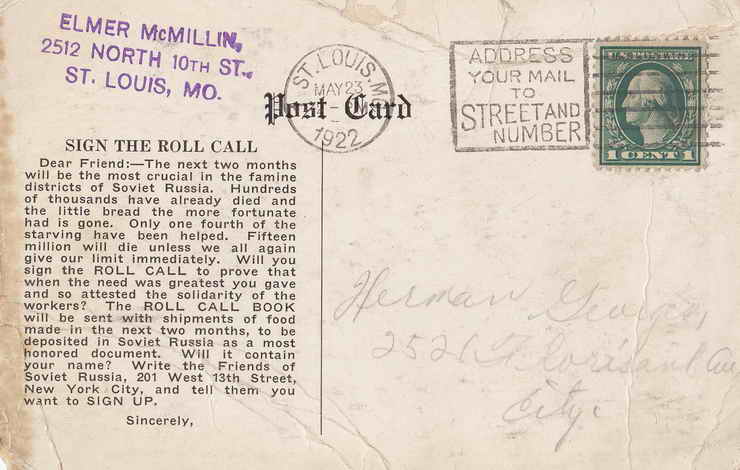 ELMER McMILLIN,
2512 NORTH 10TH ST.,
ST. LOUIS, MO.
ST. LOUIS, M
MAY 23
1922
ADDRESS
YOUR MAIL
TO
STREET AND
NUMBER
U.S. POSTAGE
1 CENT 1
Post Card
SIGN THE ROLL CALL
Dear Friend:—The next two months
will be the most crucial in the famine
districts of Soviet Russia. Hundreds
of thousands have already died and
the little bread the more fortunate
had is gone. Only one fourth of the
starving have been helped. Fifteen
million will die unless we all again
give our limit immediately. Will you
sign the ROLL CALL to prove that
when the need was greatest you gave
and so attested the solidarity of the
workers? The ROLL CALL BOOK
will be sent with shipments of food
made in the next two months, to be
deposited in Soviet Russia as a most
honored document. Will it contain
your name? Write the Friends of
Soviet Russia, 201 West 13th Street,
New York City, and tell them you
want to SIGN UP.
Sincerely,
Herman
Florisant Av
City